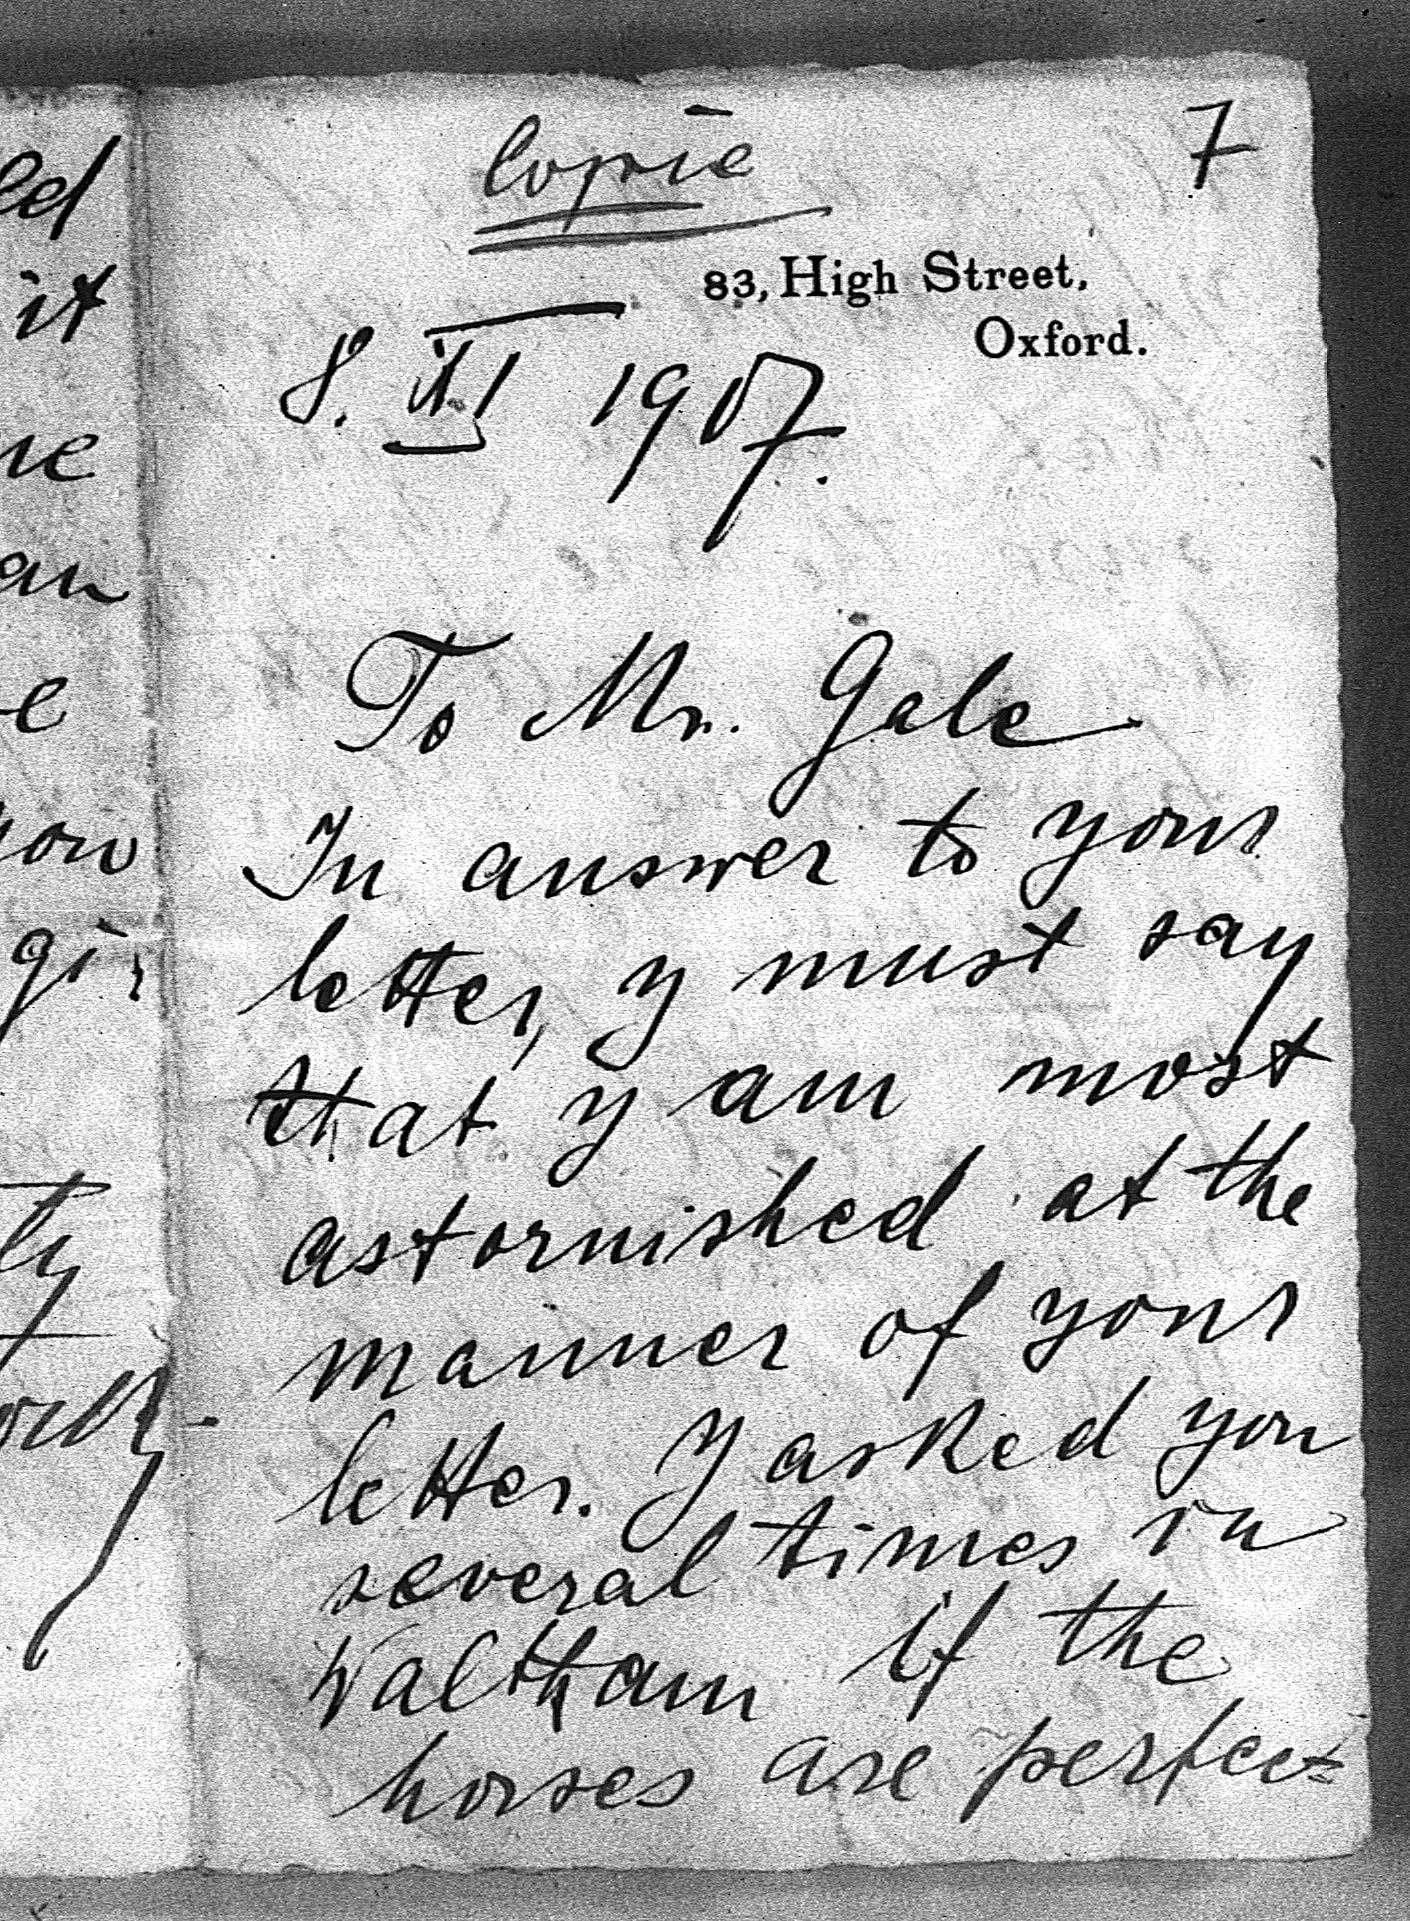 ed
it
re
an
e
you
gi,
ty
Copie
7
83, High Street,
Oxford.
8. XI 1907.
To Mr. Gale
In answer to your
letter, y must say
that y am most
astornished at the
manner of your
letter. Y asked you
several times in
Waltham if the
horses are perfect